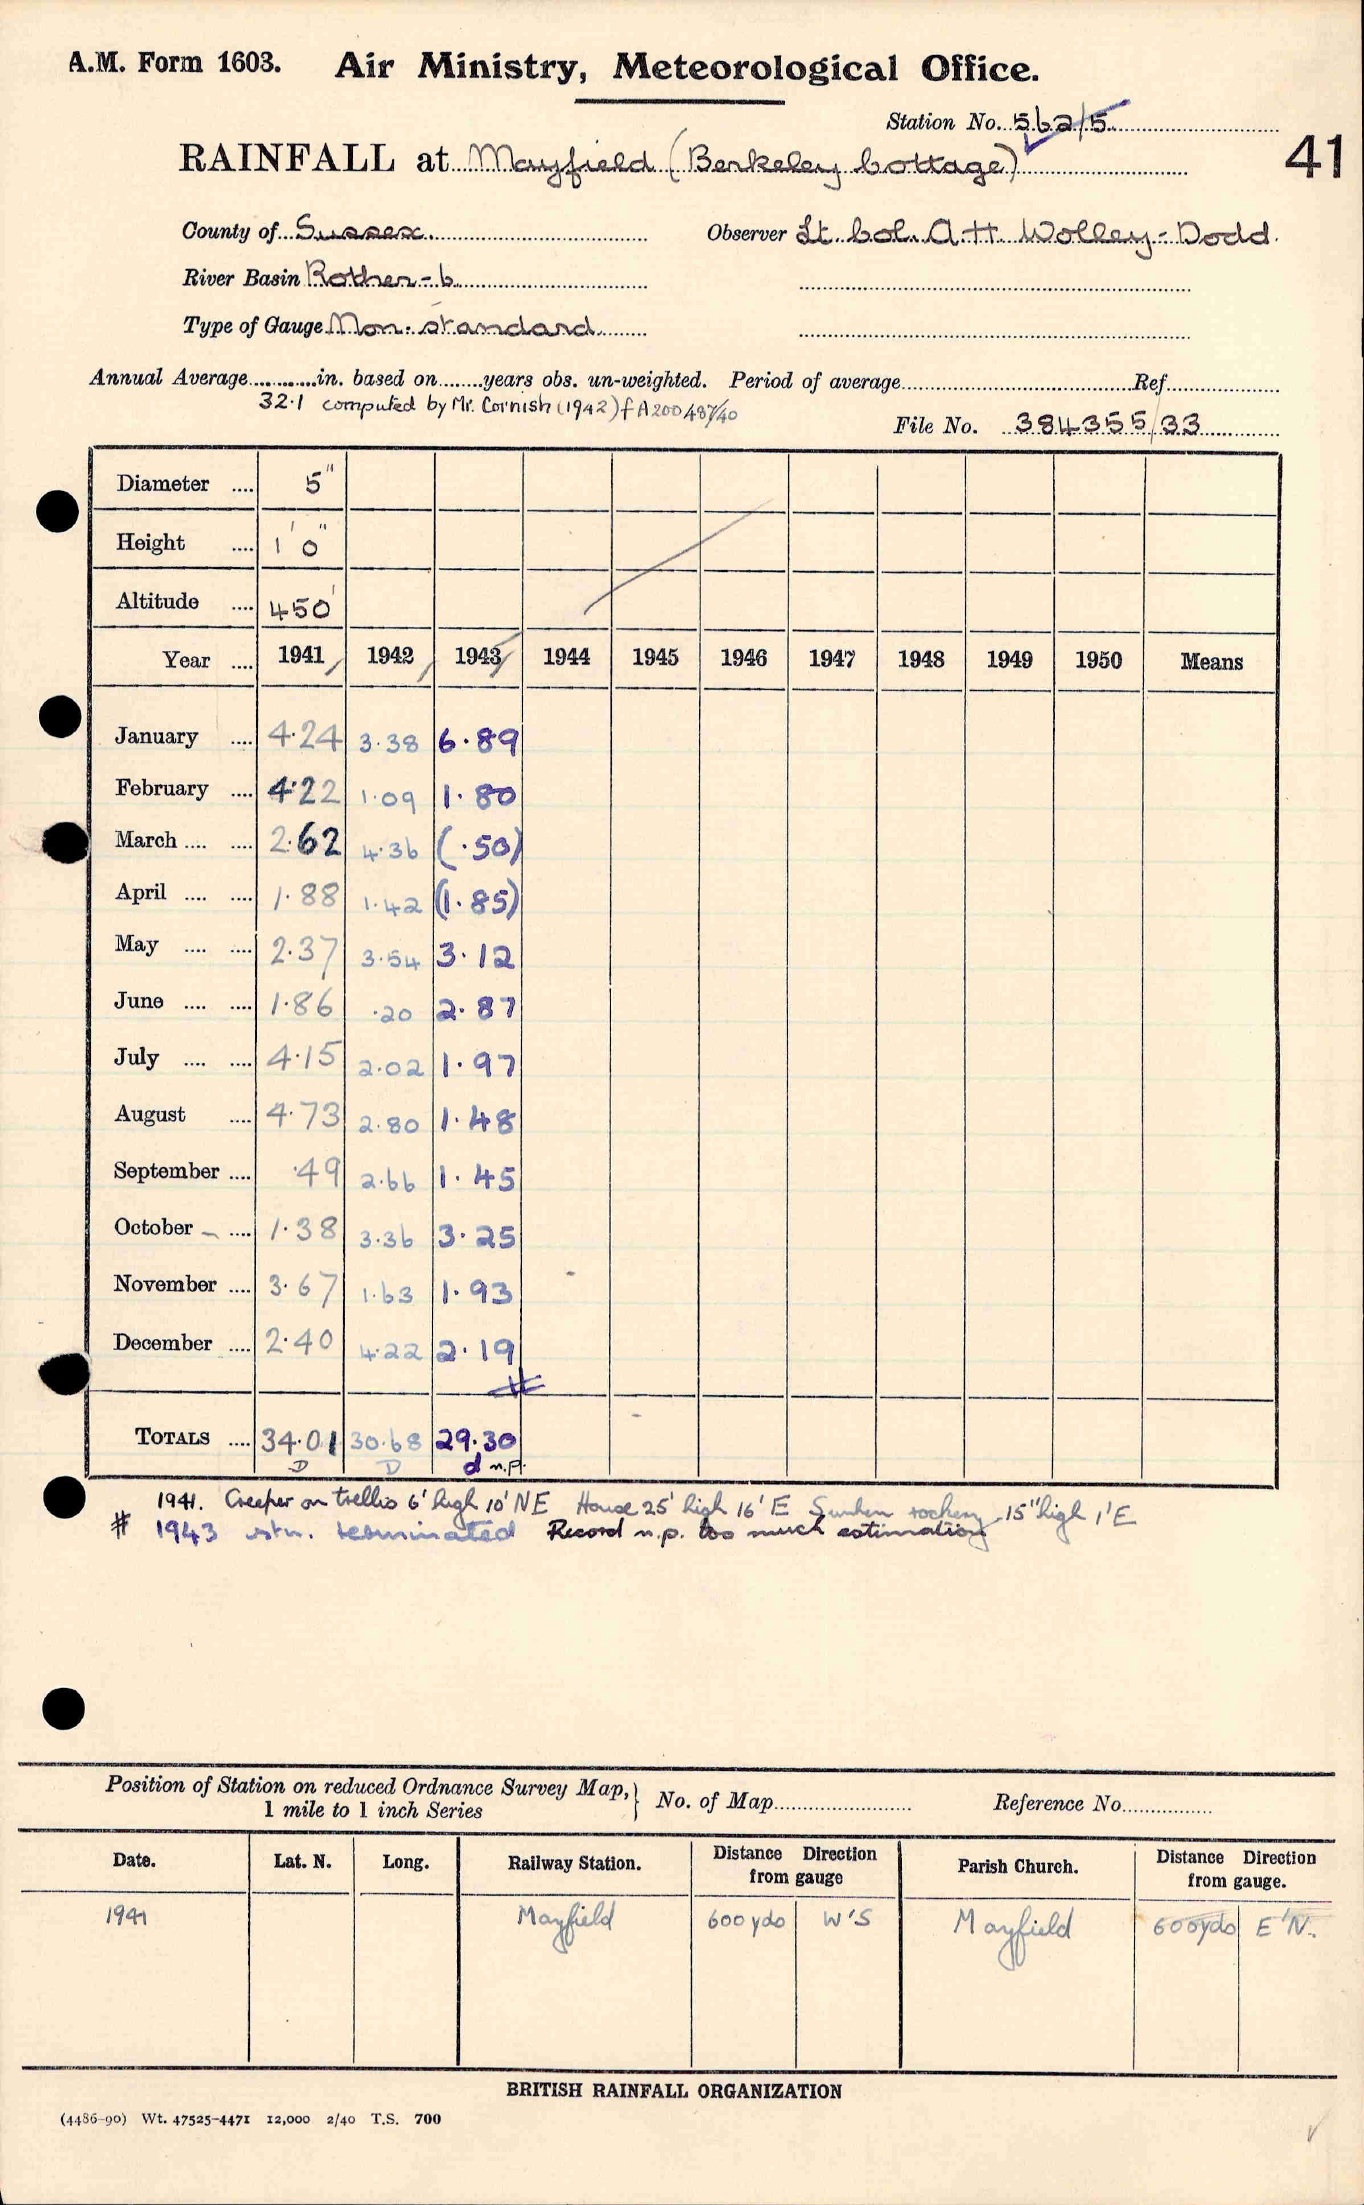 A.M. Form 1603. Air Ministry, Meteorological Office.
Station No. 562/5
RAINFALL at Mayfield (Berkeley Cottage) 41
County of Sussex Observer Lt. Col. A.H. Wolley-Dodd.
River Basin Rother-6
Type of Gauge Non-standard
Annual Average............in. based on........years obs. un-weighted. Period of average............Ref............
32.1 computed by Mr. Cornish (1942) f A200487/40
File No. 384355/33
Diameter .... 5"
Height .... 1' 0"
Altitude .... 450'
Year .... 1941 1942 1943 1944 1945 1946 1947 1948 1949 1950 Means
January .... 4.24 3.38 6.89
February .... 4.22 1.09 1.80
March .... .... 2.62 4.36 (.50)
April .... .... 1.88 1.42 (1.85)
May .... .... 2.37 3.54 3.12
June .... .... 1.86 .20 2.87
July .... .... 4.15 2.02 1.97
August .... 4.73 2.80 1.48
September .... .49 2.66 1.45
October .... 1.38 3.36 3.25
November .... 3.67 1.63 1.93
December .... 2.40 4.22 2.19
#
TOTALS .... 34.01 30.68 29.30
D D d n.p.
1941. Creeper on trellis 6' high 10' NE House 25' high 16' E Sunken rockery 15" high 1' E
# 1943 stn. terminated Record n.p. too much estimation
Position of Station on reduced Ordnance Survey Map, } No. of Map............ Reference No............
1 mile to 1 inch Series
Date. Lat. N. Long. Railway Station. Distance from gauge Direction Parish Church. Distance from gauge. Direction
1941 Mayfield 600 yds W'S Mayfield 600 yds E'N.
BRITISH RAINFALL ORGANIZATION
(4486-90) Wt. 47525-4471 12,000 2/40 T.S. 700